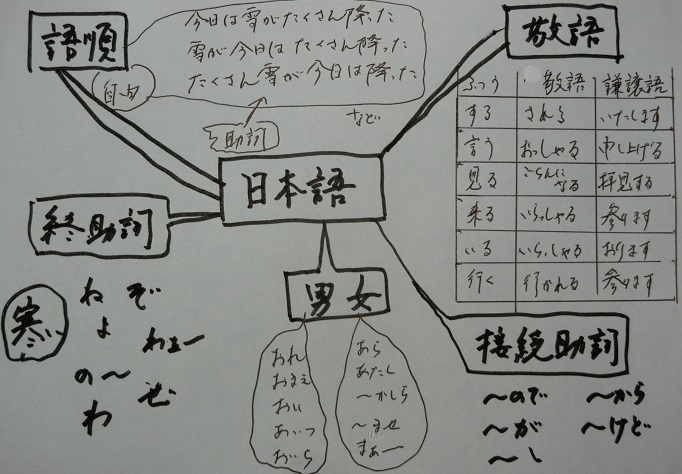 語順
今日は雪がたくさん降った
雪が今日はたくさん降った
たくさん雪が今日は降った
自由
など
助詞
敬語
ふつう 敬語 謙譲語
する される いたします
言う おっしゃる 申し上げる
見る ごらんになる 拝見する
来る いらっしゃる 参ります
いる いらっしゃる おります
行く 行かれる 参ります
日本語
終助詞
寒い
ね ぞ
よ わよー
の〜 ぜ
わ
男女
おれ
おまえ
おい
あいつ
おいら
あら
あたし
〜かしら
〜ませ
まあー
接続助詞
〜ので 〜から
〜が 〜けど
〜し